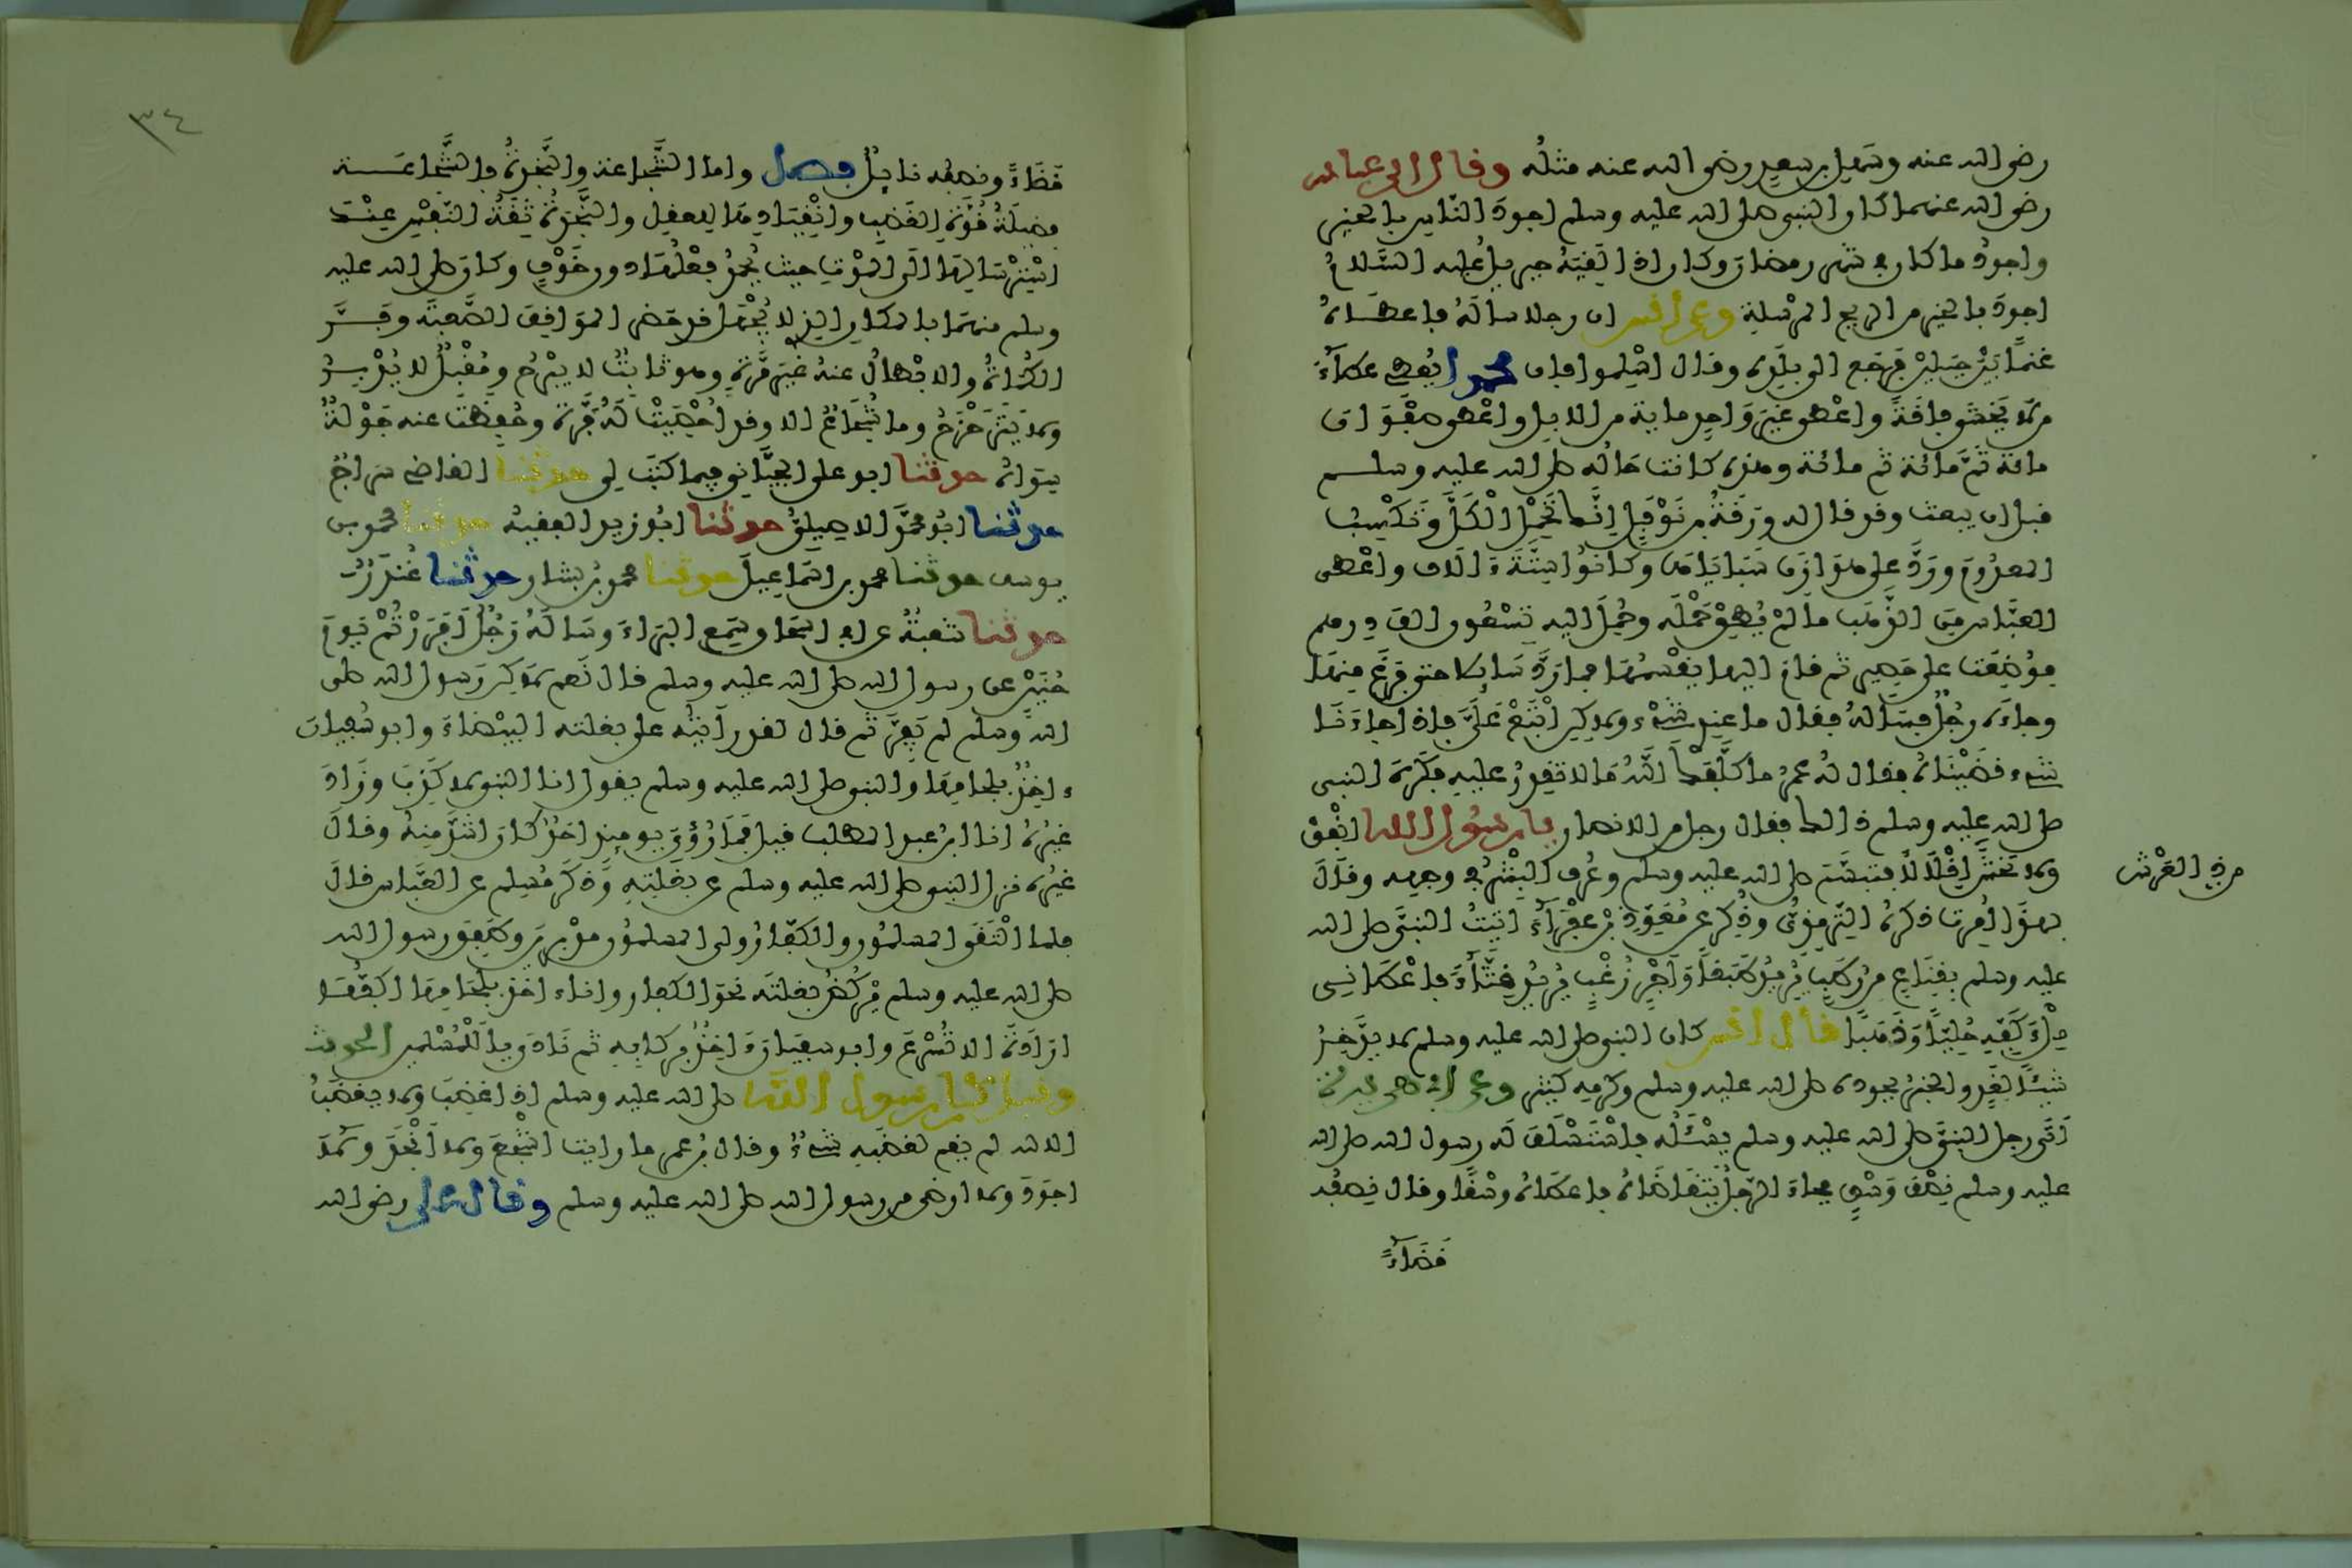 رضى الله عنه وسهل بن سعد رضى الله عنه مثله وقال ابن عباس
رضى الله عنهما كان النبي صلى الله عليه وسلم اجود الناس بالخير
واجود ما كان في شهر رمضان وكان اذا لقيه جبريل عليه السلام
اجود بالخير من الريح المرسلة وعن أنس ان رجلا سأله فاعطاه
غنما بين جبلين فرجع الى بلده وقال اسلموا فان محمدا يعطى عطاء
من لا يخشى فاقة واعطى غير واحد ماية من الابل واعطى صفوان
مائة ثم مائة ثم مائة وهذه كانت حاله صلى الله عليه وسلم
قبل ان يبعث وقد قال له ورقة بن نوفل انما تحمل الكل وتكسب
المعدوم ورد على هوازن سباياها وكانوا ستة ءالاف واعطى
العباس من الذهب ما لم يطق حمله وحمل اليه تسعون الف درهم
فوضعت على حصير ثم قام اليها يقسمها فما رد سايلا حتى فرغ منها
وجاءه رجل فسأله فقال ما عندي شىء ولكن ابتع علي فاذا جاءنا
شىء قضيناه فقال له عمر ما كلفك الله ما لا تقدر عليه فكره النبي
صلى الله عليه وسلم ذالك فقال رجل من الانصار يا رسول الله انفق
ولا تخش اقلالا فتبسم صلى الله عليه وسلم وعرف البشر في وجهه وقال
من ذى العرش
بهذا امرت ذكره الترمذي وذكر عن معوذ بن عفراء اتيت النبي صلى الله
عليه وسلم بقناع من رطب يريد طبقا واجر زغب يريد قثاء فاعطاني
ملء كفه حليا وذهبا قال أنس كان النبي صلى الله عليه وسلم لا يدخر
شيئا لغد والخبر بجوده صلى الله عليه وسلم وكرمه كثير وعن ابي هريرة
أتى رجل النبي صلى الله عليه وسلم يسئله فاستسلف له رسول الله صلى الله
عليه وسلم نصف وسق فجاء الرجل يتقاضاه فاعطاه وسقا وقال نصفه
قضاء
٣٤
قضاء ونصفه نايل فصل واما الشجاعة والنجدة فالشجاعة
فضيلة قوة الغضب وانقيادها للعقل والنجدة ثقة النفس عند
استرسالها الى الموت حيث يحمد فعلها دون خوف وكان صلى الله عليه
وسلم منهما بالمكان الذي لا يجهل قد حضر المواقف الصعبة وفر
الكماة والابطال عنه غير مرة وهو ثابت لا يبرح ومقبل لا يدبر
ولا يتزحزح وما شجاع الا وقد احصيت له فرة وحفظت عنه جولة
سواه حدثنا ابو على الجياني فيما كتب لى حدثنا القاضي سراج
حدثنا ابو محمد الاصيلي حدثنا ابو زيد الفقيه حدثنا محمد بن
يوسف حدثنا محمد بن اسماعيل حدثنا محمد بن بشار حدثنا غندر
حدثنا شعبة عن ابي اسحاق سمع البراء وسأله رجل أفررتم يوم
حنين عن رسول الله صلى الله عليه وسلم قال نعم لكن رسول الله صلى
الله وسلم لم يفر ثم قال لقد رأيته على بغلته البيضاء وابو سفيان
ءاخذ بلجامها والنبي صلى الله عليه وسلم يقول انا النبي لا كذب وزاد
غيره انا ابن عبد المطلب قيل فما رؤى يومئذ احد كان اشد منه وقال
غيره نزل النبي صلى الله عليه وسلم عن بغلته وذكر مسلم عن العباس قال
فلما التقى المسلمون والكفار ولى المسلمون مدبرين وطفق رسول الله
صلى الله عليه وسلم يركض بغلته نحو الكفار وانا ءاخذ بلجامها اكفها
ارادة الا تسرع وابو سفيان ءاخذ بركابه ثم نادى يا للمسلمين الحديث
وقيل كان رسول الله صلى الله عليه وسلم اذا غضب ولا يغضب
الا لله لم يقم لغضبه شىء وقال ابن عمر ما رايت اشجع ولا انجد ولا
اجود ولا ارضى من رسول الله صلى الله عليه وسلم وقال على رضى الله